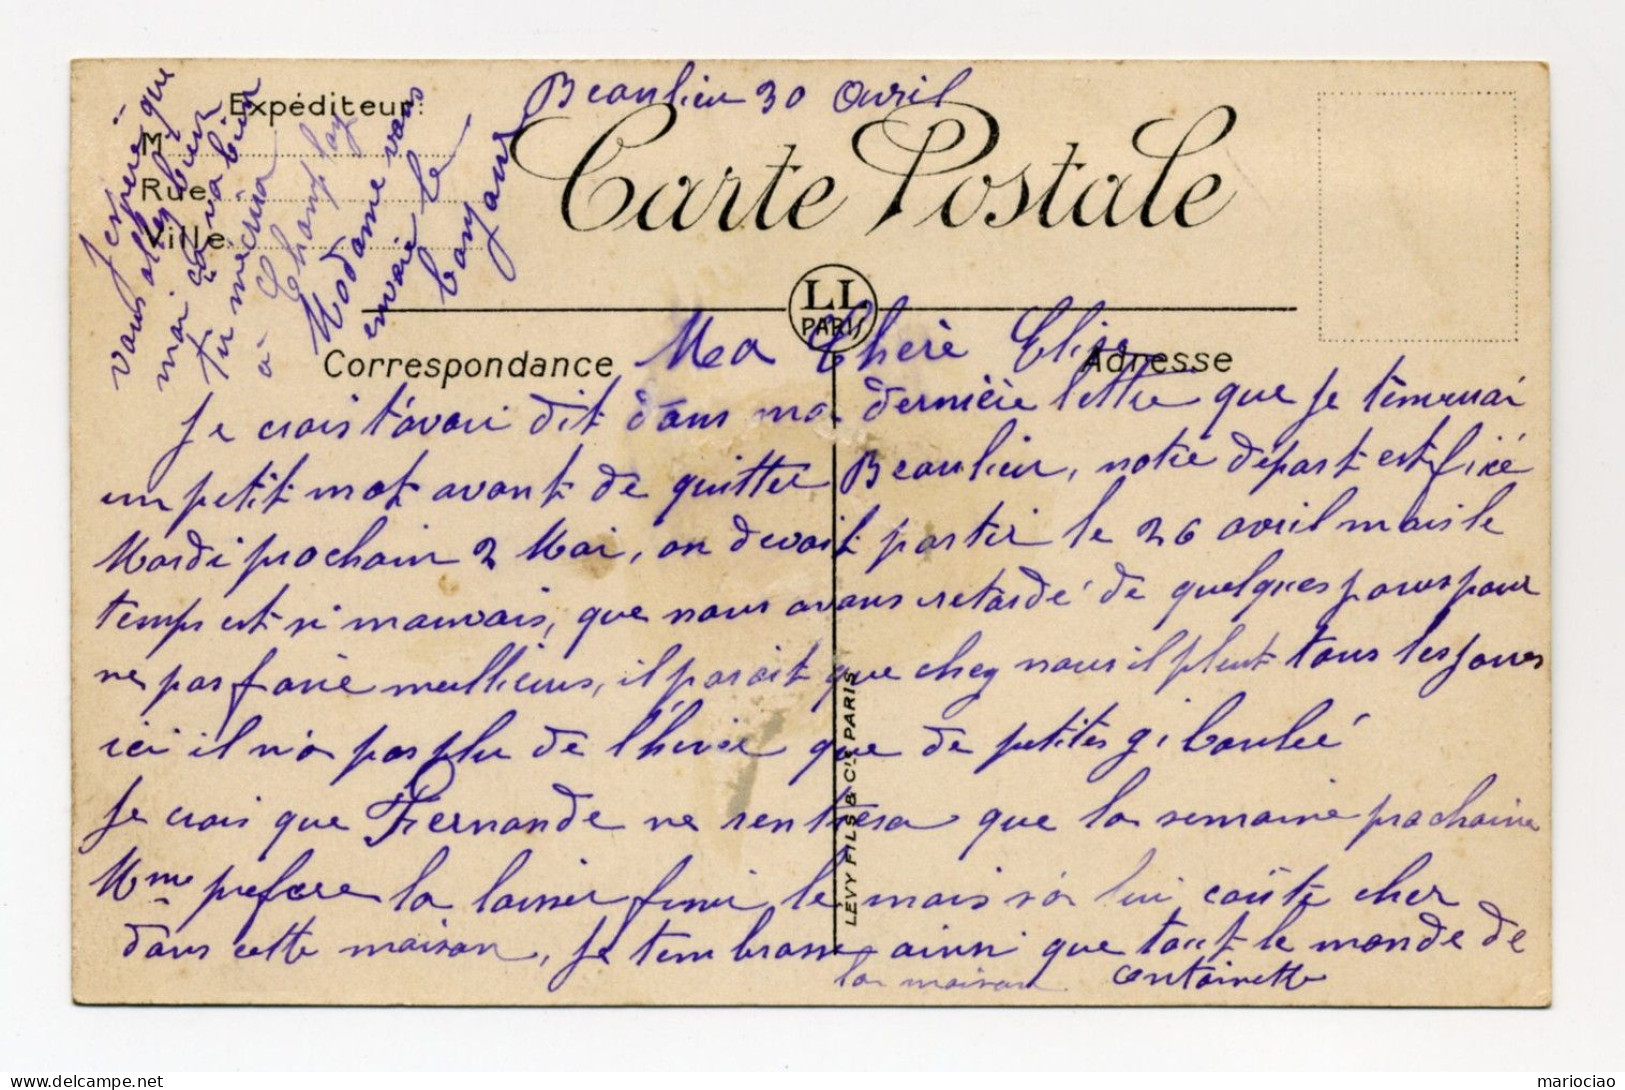 Beaulieu 30 Avril
Carte Postale
Expéditeur:
M
Rue
Ville
J'espère que
vous allez bien
moi ça va bien
Tu m'écrira
à Champlay
Madame vous
envoie le
bonjour
LL
PARIS
Correspondance
Adresse
Ma Chère Elise
Je crois t'avoir dit dans ma dernière lettre que je t'enverrai
un petit mot avant de quitter Beaulieu, notre départ est fixé
Mardi prochain 2 Mai, on devait partir le 26 avril mais le
temps est si mauvais, que nous avons retardé de quelques jours pour
ne pas faire meillieurs, il parait que chez nous il pleut tous les jours
ici il n'a pas plu de l'hiver que de petites giboulé
Je crois que Fernande ne rentrera que la semaine prochaine
Mme prefere la laisser finir le mois sa lui coûte cher
dans cette maison, je t'embrasse ainsi que tout le monde de
la maison Antoinette
LÉVY FILS & Cie PARIS
mariociao